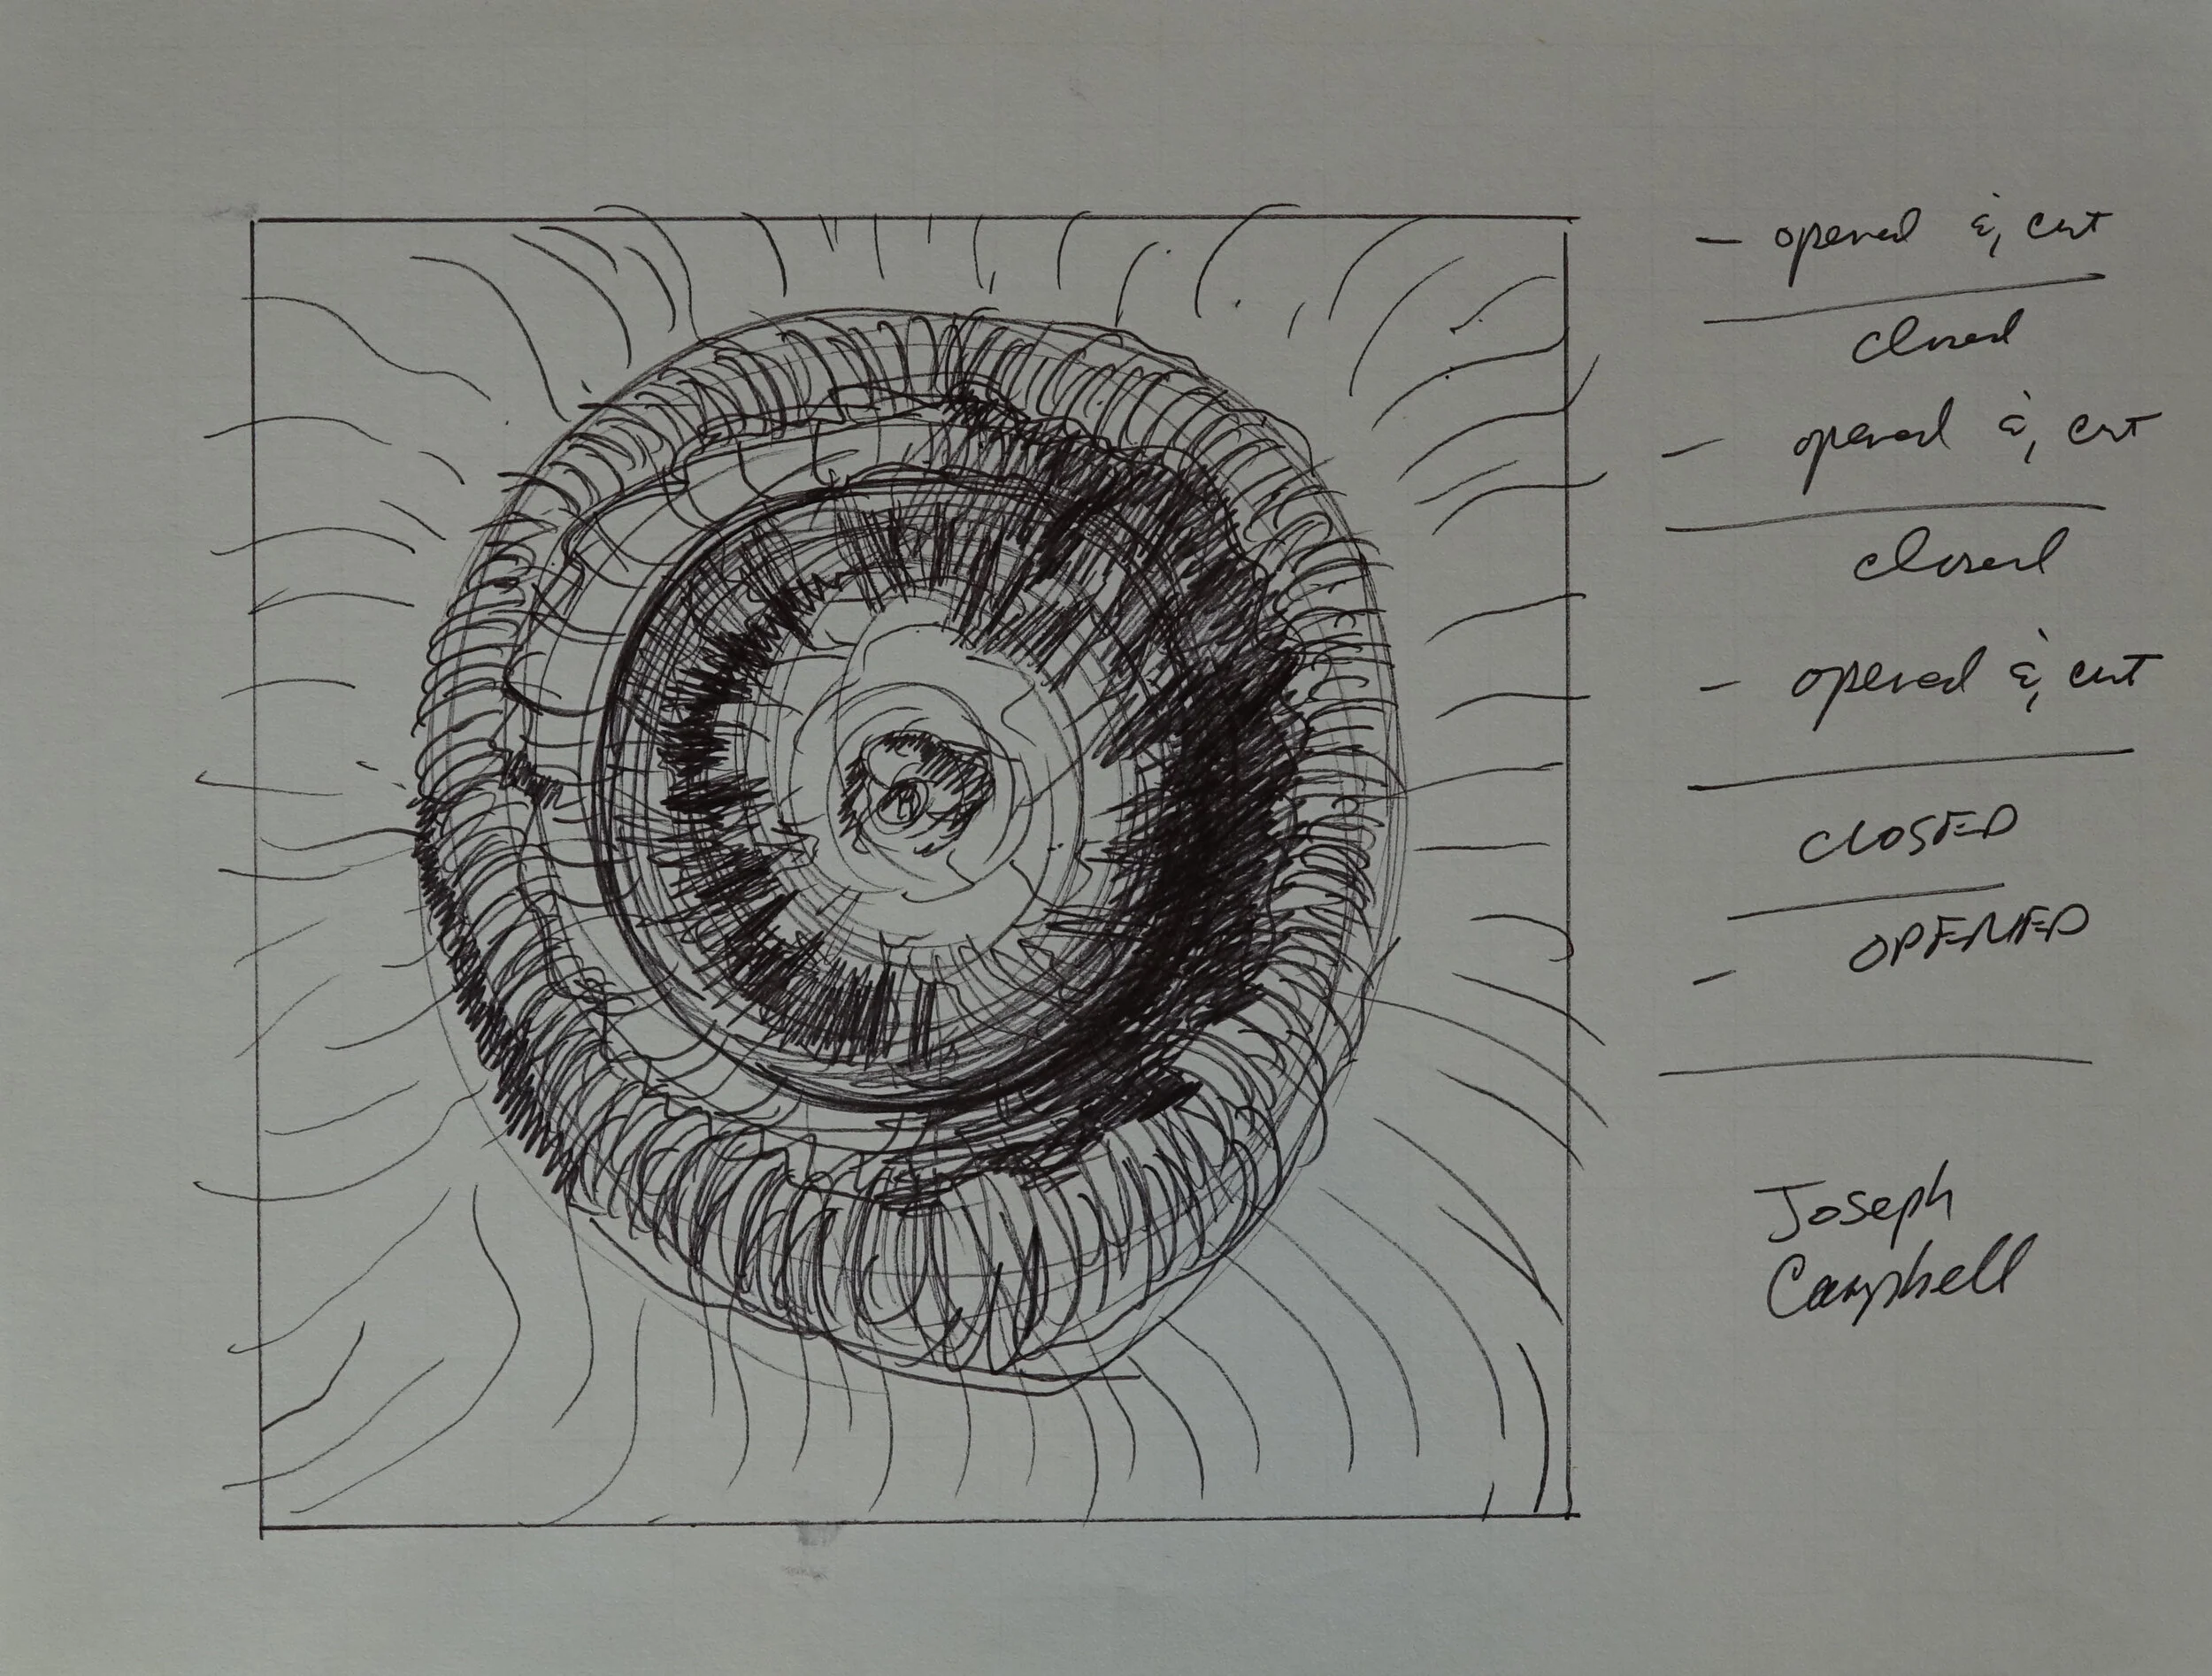 - opened & cut
closed
- opened & cut
closed
- opened & cut
CLOSED
- OPENED
Joseph
Campbell